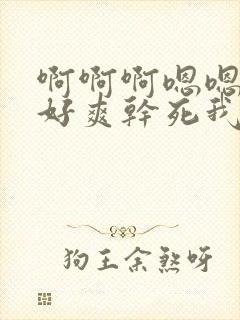 啊啊啊嗯嗯
好爽幹死我
狗王余煞呀